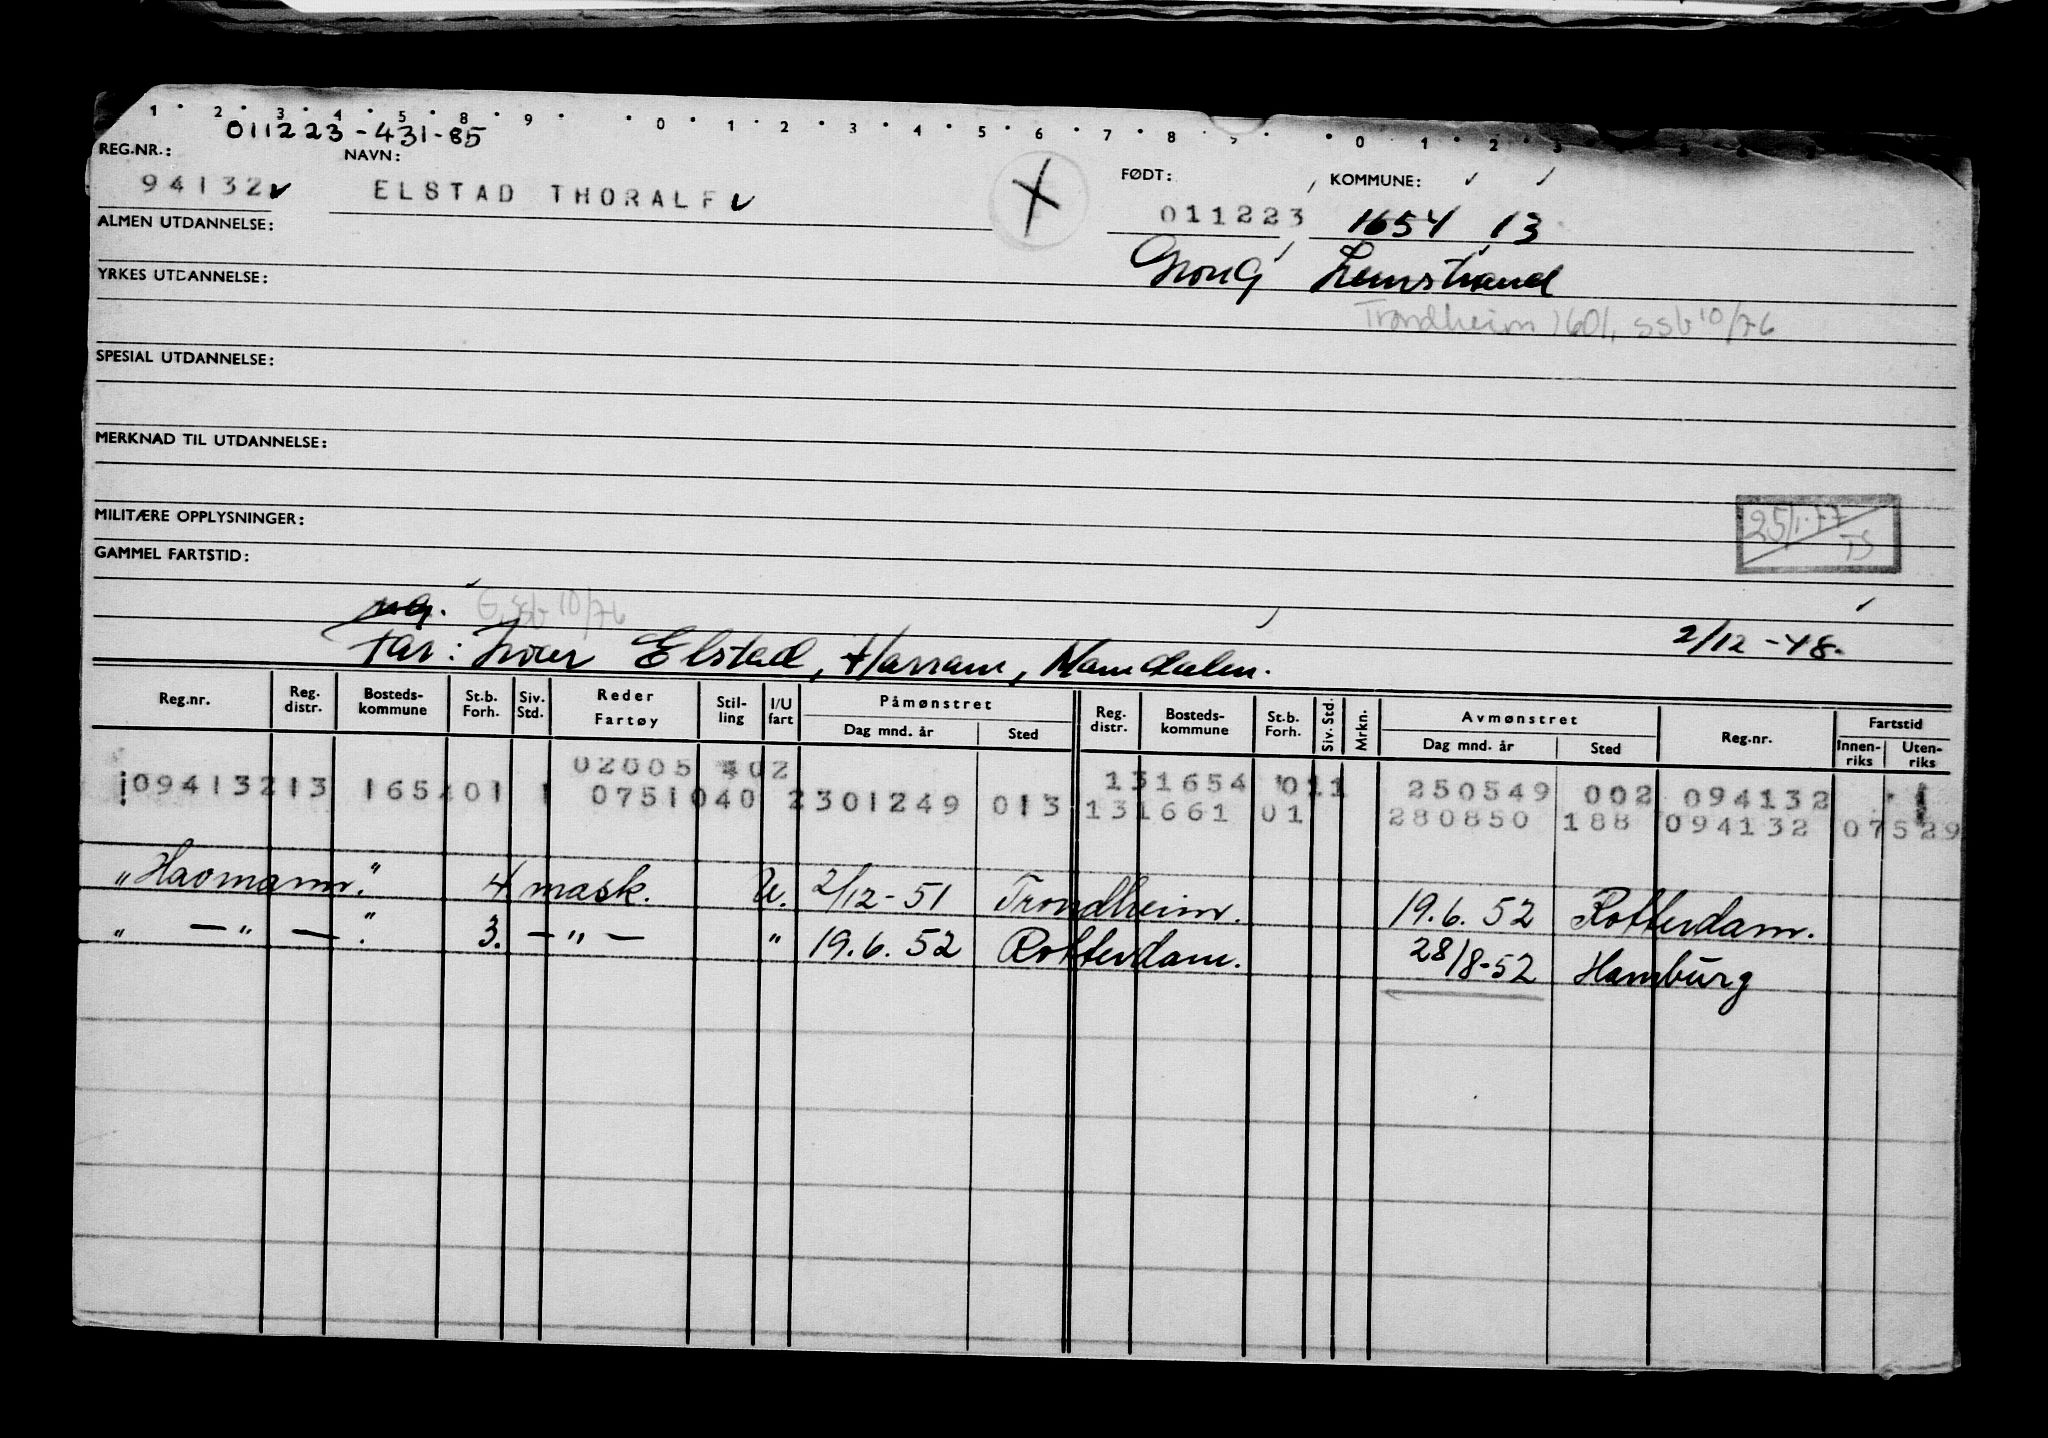 1 2 3 4 5 8 9 0 1 2 3 4 5 6 7 8 9 0 1 2 3
011223-431-85
REG.NR.: NAVN: FØDT: KOMMUNE:
94132 ELSTAD THORALF X 011223 1654 13
ALMEN UTDANNELSE: Grong Leinstrand
YRKES UTDANNELSE:
Trondheim 1601, ssb 10/76
SPESIAL UTDANNELSE:
MERKNAD TIL UTDANNELSE:
MILITÆRE OPPLYSNINGER: 25/1-77 TS
GAMMEL FARTSTID:
ug. G, ssb 10/76
Far: Iver Elstad, Harran, Namdalen. 2/12-48.
Reg.nr. Reg. distr. Bosteds-kommune St.b. Forh. Siv. Std. Reder Fartøy Stil-ling I/U fart Påmønstret Dag mnd. år Sted Reg. distr. Bosteds-kommune St.b. Forh. Siv. Std. Mrkn. Avmønstret Dag mnd. år Sted Reg.nr. Fartstid Innen-riks Uten-riks
02005 402 131654 011 250549 002 094132
094132 13 165401 1 0751040 2 301249 013 131661 01 280850 188 094132 07529
"Havmann." 4 mask. U. 2/12-51 Trondheim. 19.6.52 Rotterdam.
" —"— ." 3. —"— " 19.6.52 Rotterdam. 28/8-52 Hamburg